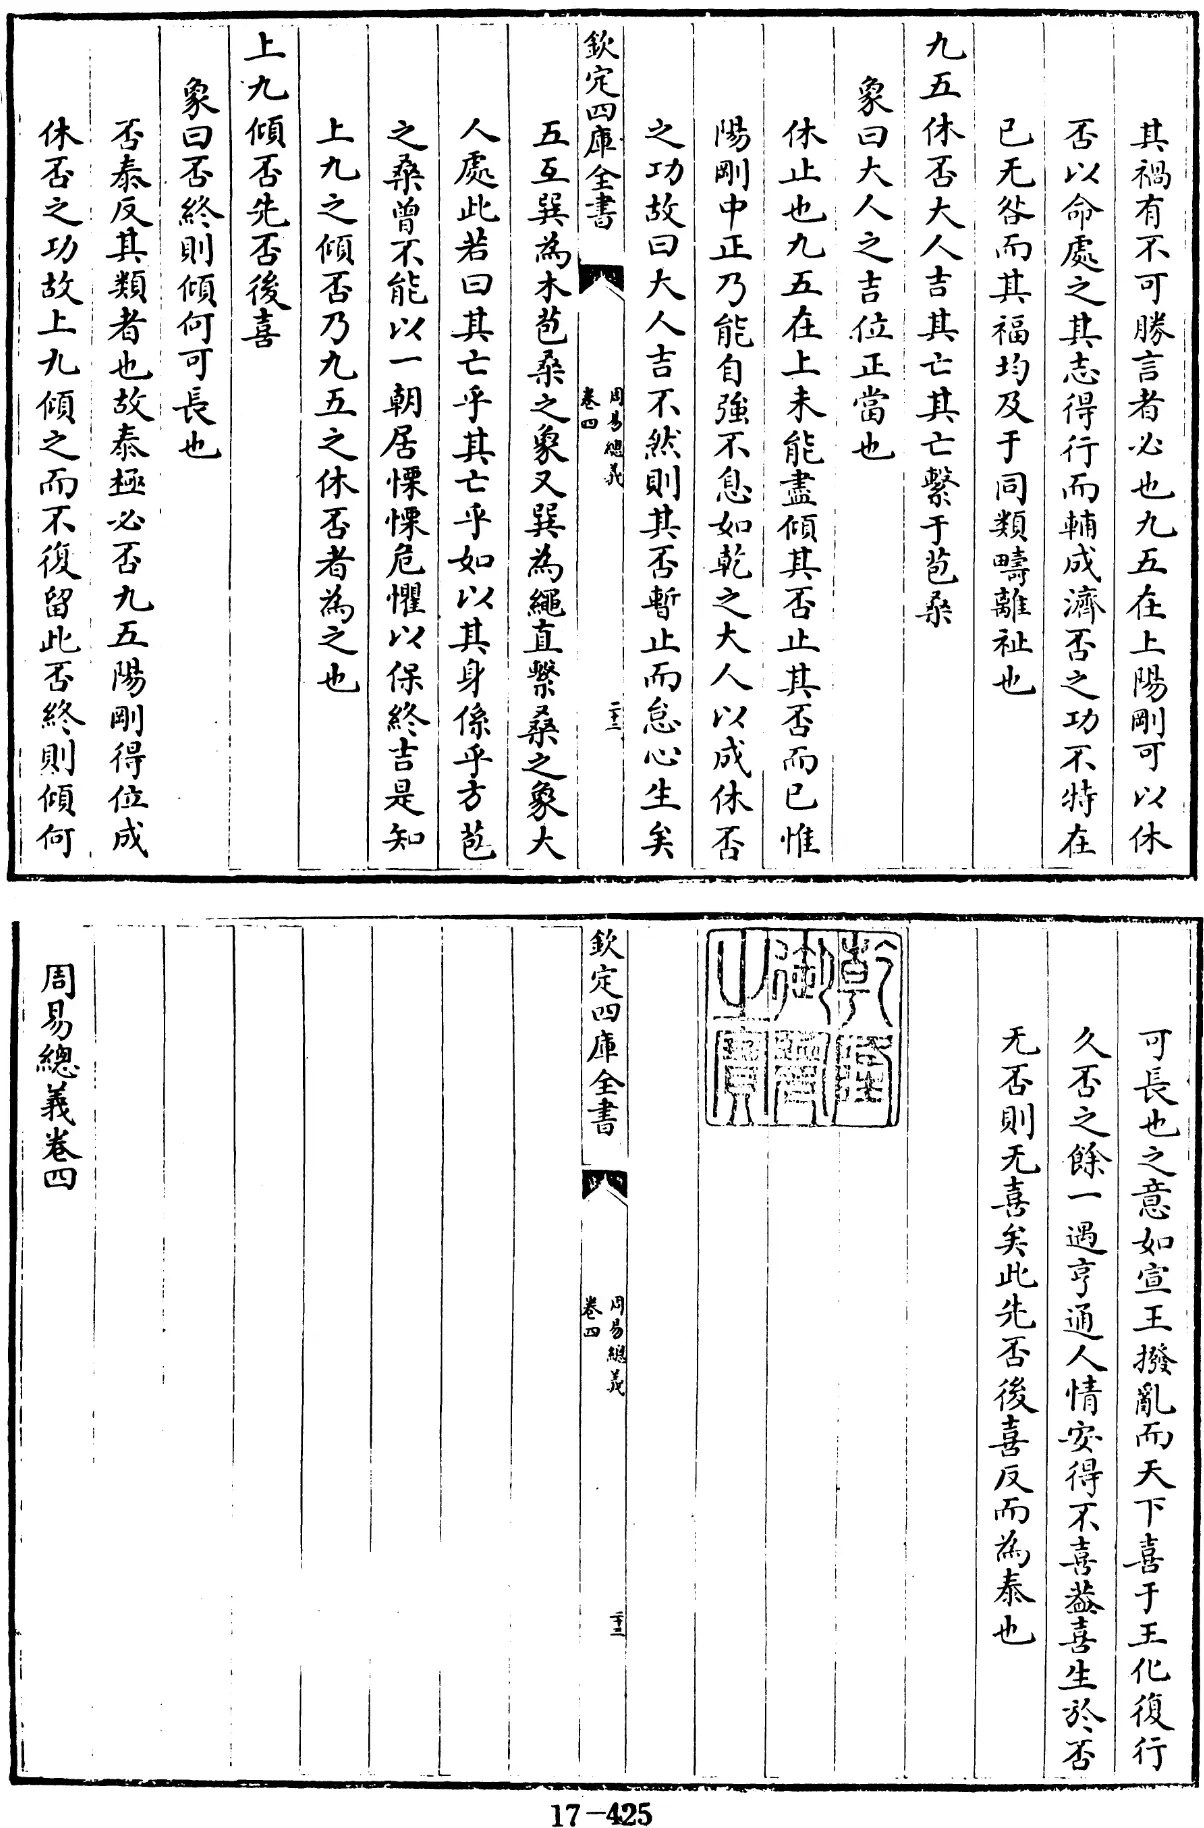 其禍有不可勝言者必也九五在上陽剛可以休
否以命處之其志得行而輔成濟否之功不特在
已无咎而其福均及于同類疇離祉也
九五休否大人吉其亡其亡繫于苞桑
象曰大人之吉位正當也
休止也九五在上未能盡傾其否止其否而已惟
陽剛中正乃能自強不息如乾之大人以成休否
之功故曰大人吉不然則其否暫止而怠心生矣
欽定四庫全書
周易總義
卷四
二十二
五互巽為木苞桑之象又巽為繩直繫桑之象大
人處此若曰其亡乎其亡乎如以其身係乎方苞
之桑曾不能以一朝居慄慄危懼以保終吉是知
上九之傾否乃九五之休否者為之也
上九傾否先否後喜
象曰否終則傾何可長也
否泰反其類者也故泰極必否九五陽剛得位成
休否之功故上九傾之而不復留此否終則傾何
可長也之意如宣王撥亂而天下喜于王化復行
久否之餘一遇亨通人情安得不喜葢喜生於否
无否則无喜矣此先否後喜反而為泰也
乾隆
御覽
之寶
欽定四庫全書
周易總義
卷四
二十二
周易總義卷四
17-425